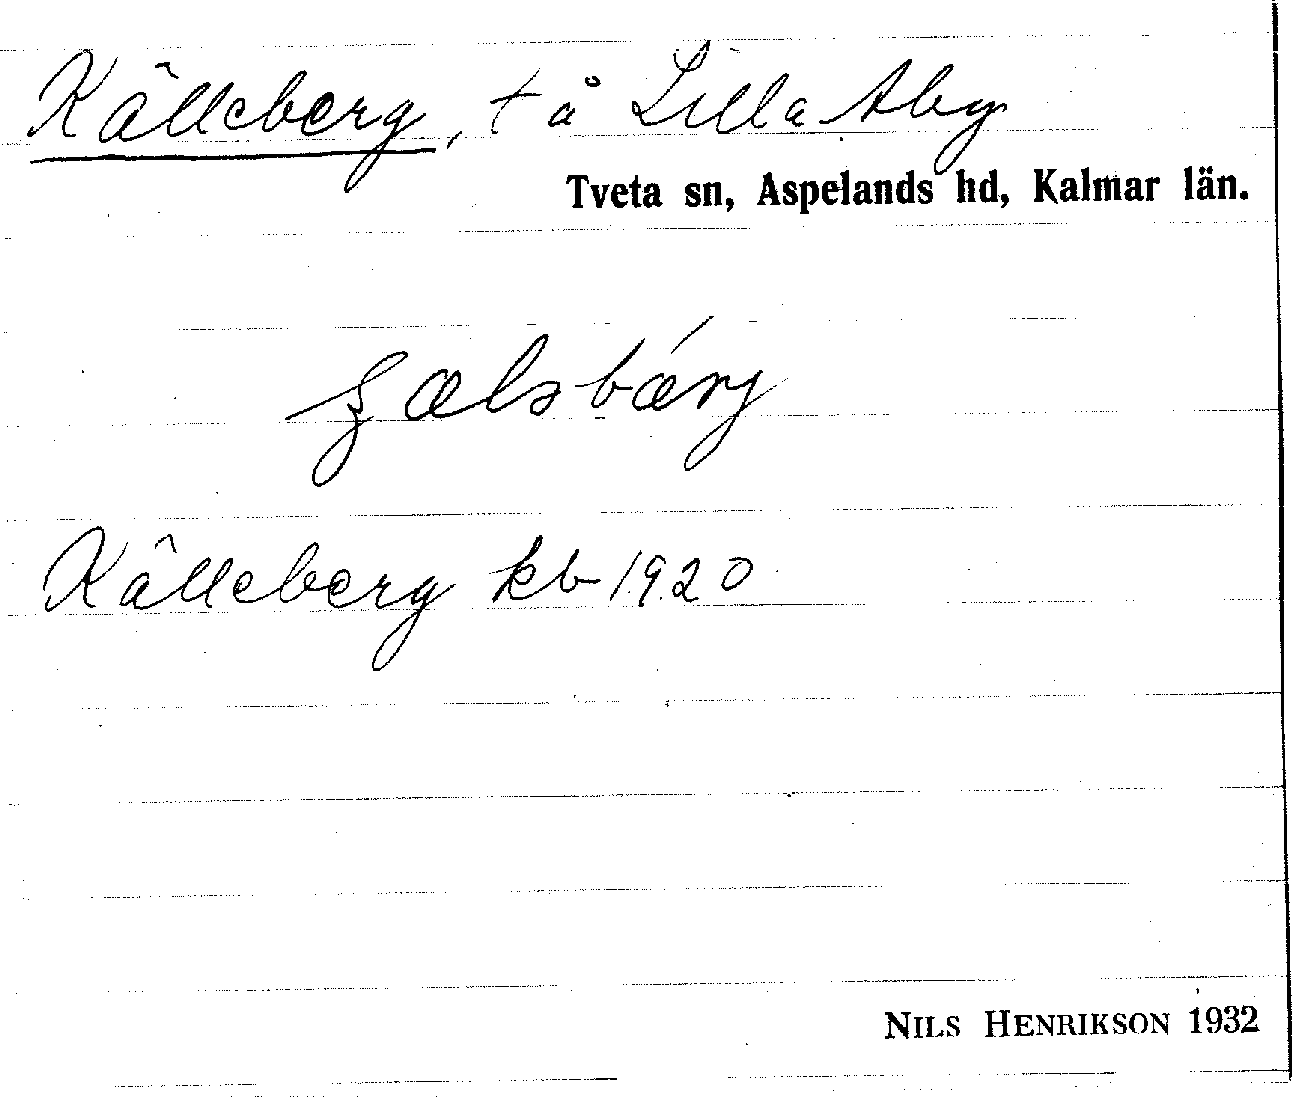 Källeberg, t å Lilla Aby
Tveta sn, Aspelands hd, Kalmar län.
Källeberg kb 1920
NILS HENRIKSON 1932